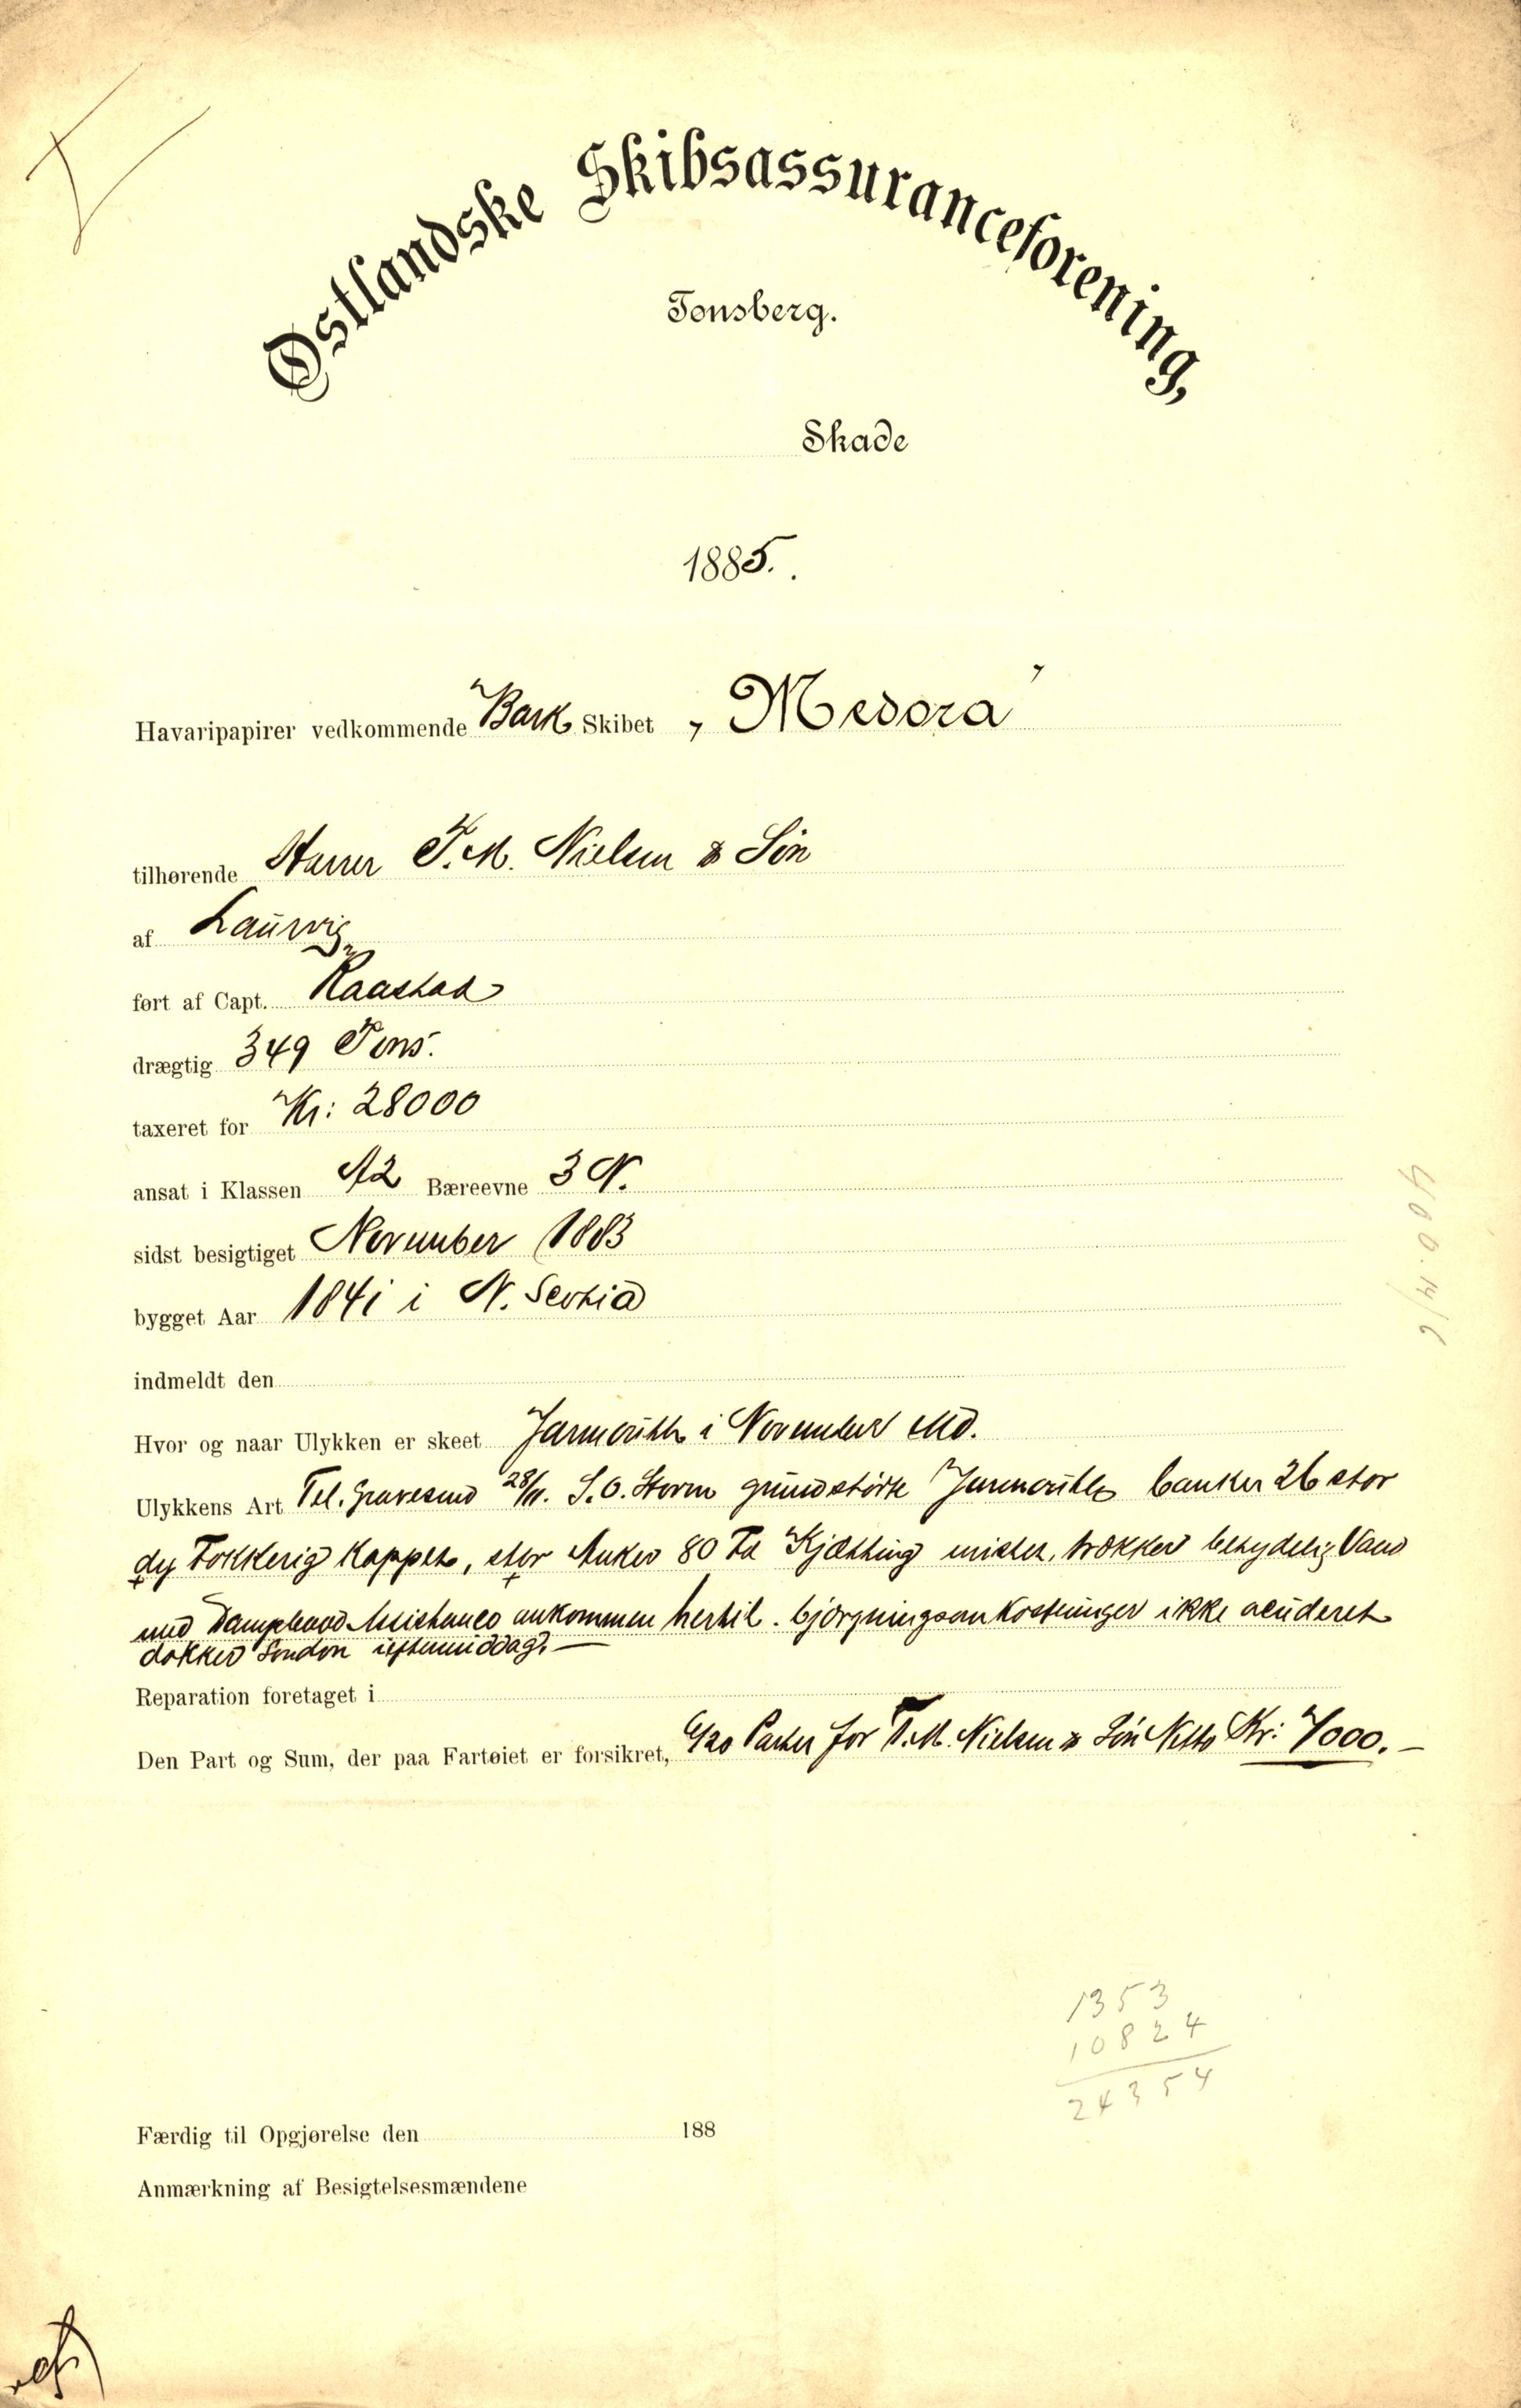 Østlandske Skibsassuranceforening,
Tønsberg.
Skade
1885.
Havaripapirer vedkommende Bark Skibet „Medora"
tilhørende Herrer T. M. Nielsen & Søn
af Laurvig
ført af Capt. Raastad
drægtig 349 Tons.
taxeret for Kr: 28000
ansat i Klassen A2 Bæreevne 3 N.
sidst besigtiget November 1883
bygget Aar 1841 i N. Scotia
indmeldt den
Hvor og naar Ulykken er skeet Jarmouth i November Md.
Ulykkens Art Tel. Gravesend 28/11. S.O. Storm grundstødte Jarmouth banker 26 stor
rig Fokkerig Kappet, stor Anker 80 Fd Kjætting mistet, trækker betydelig Vand
med Dampbaad Assistance ankommen hertil. bjergningsomkostninger ikke
dokker London eftermiddag. —
Reparation foretaget i
Den Part og Sum, der paa Fartøiet er forsikret, 6/20 Parter for T. M. Nielsen & Søn Netto Kr: 7000. —
1353
10824
24354
Færdig til Opgjørelse den 188
Anmærkning af Besigtelsesmændene